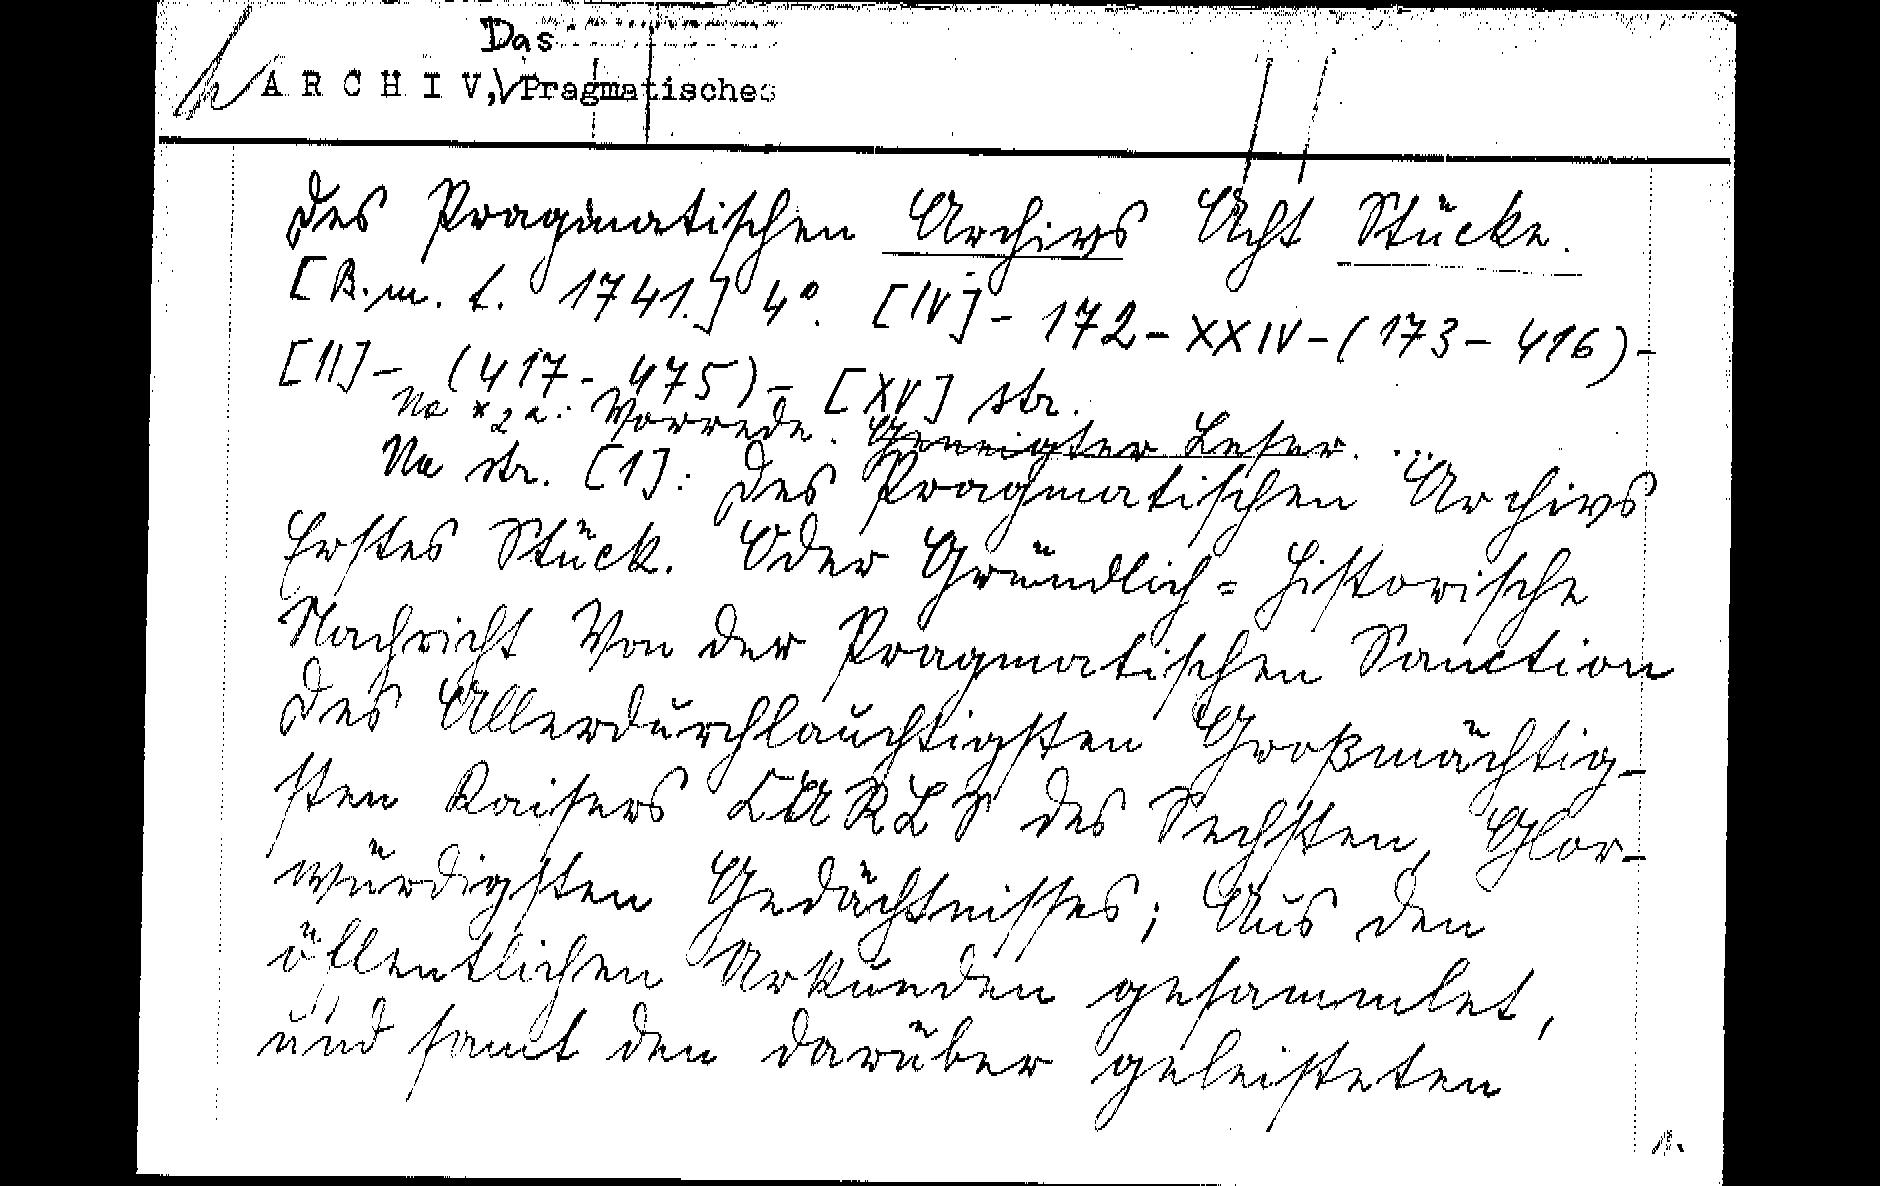 Das
ARCHIV, Pragmatisches
Des Pragmatischen Archivs Acht Stücke.
[B.m. t. 1741.] 4°. [IV] - 172 - XXIV - (173 - 416) -
[II] - (417 - 475) - [XV] str.
Na *2a: Vorrede. Geneigter Leser. ...
Na str. [1]: Des Pragmatischen Archivs
Erstes Stück. Oder Gründlich = Historische
Nachricht Von der Pragmatischen Sanction
Des Allerdurchlauchtigsten Großmächtig-
sten Kaisers CARLS des Sechsten, Glor-
würdigsten Gedächtnisses; Aus den
öffentlichen Urkunden gesammlet,
und samt den darüber geleisteten
1.